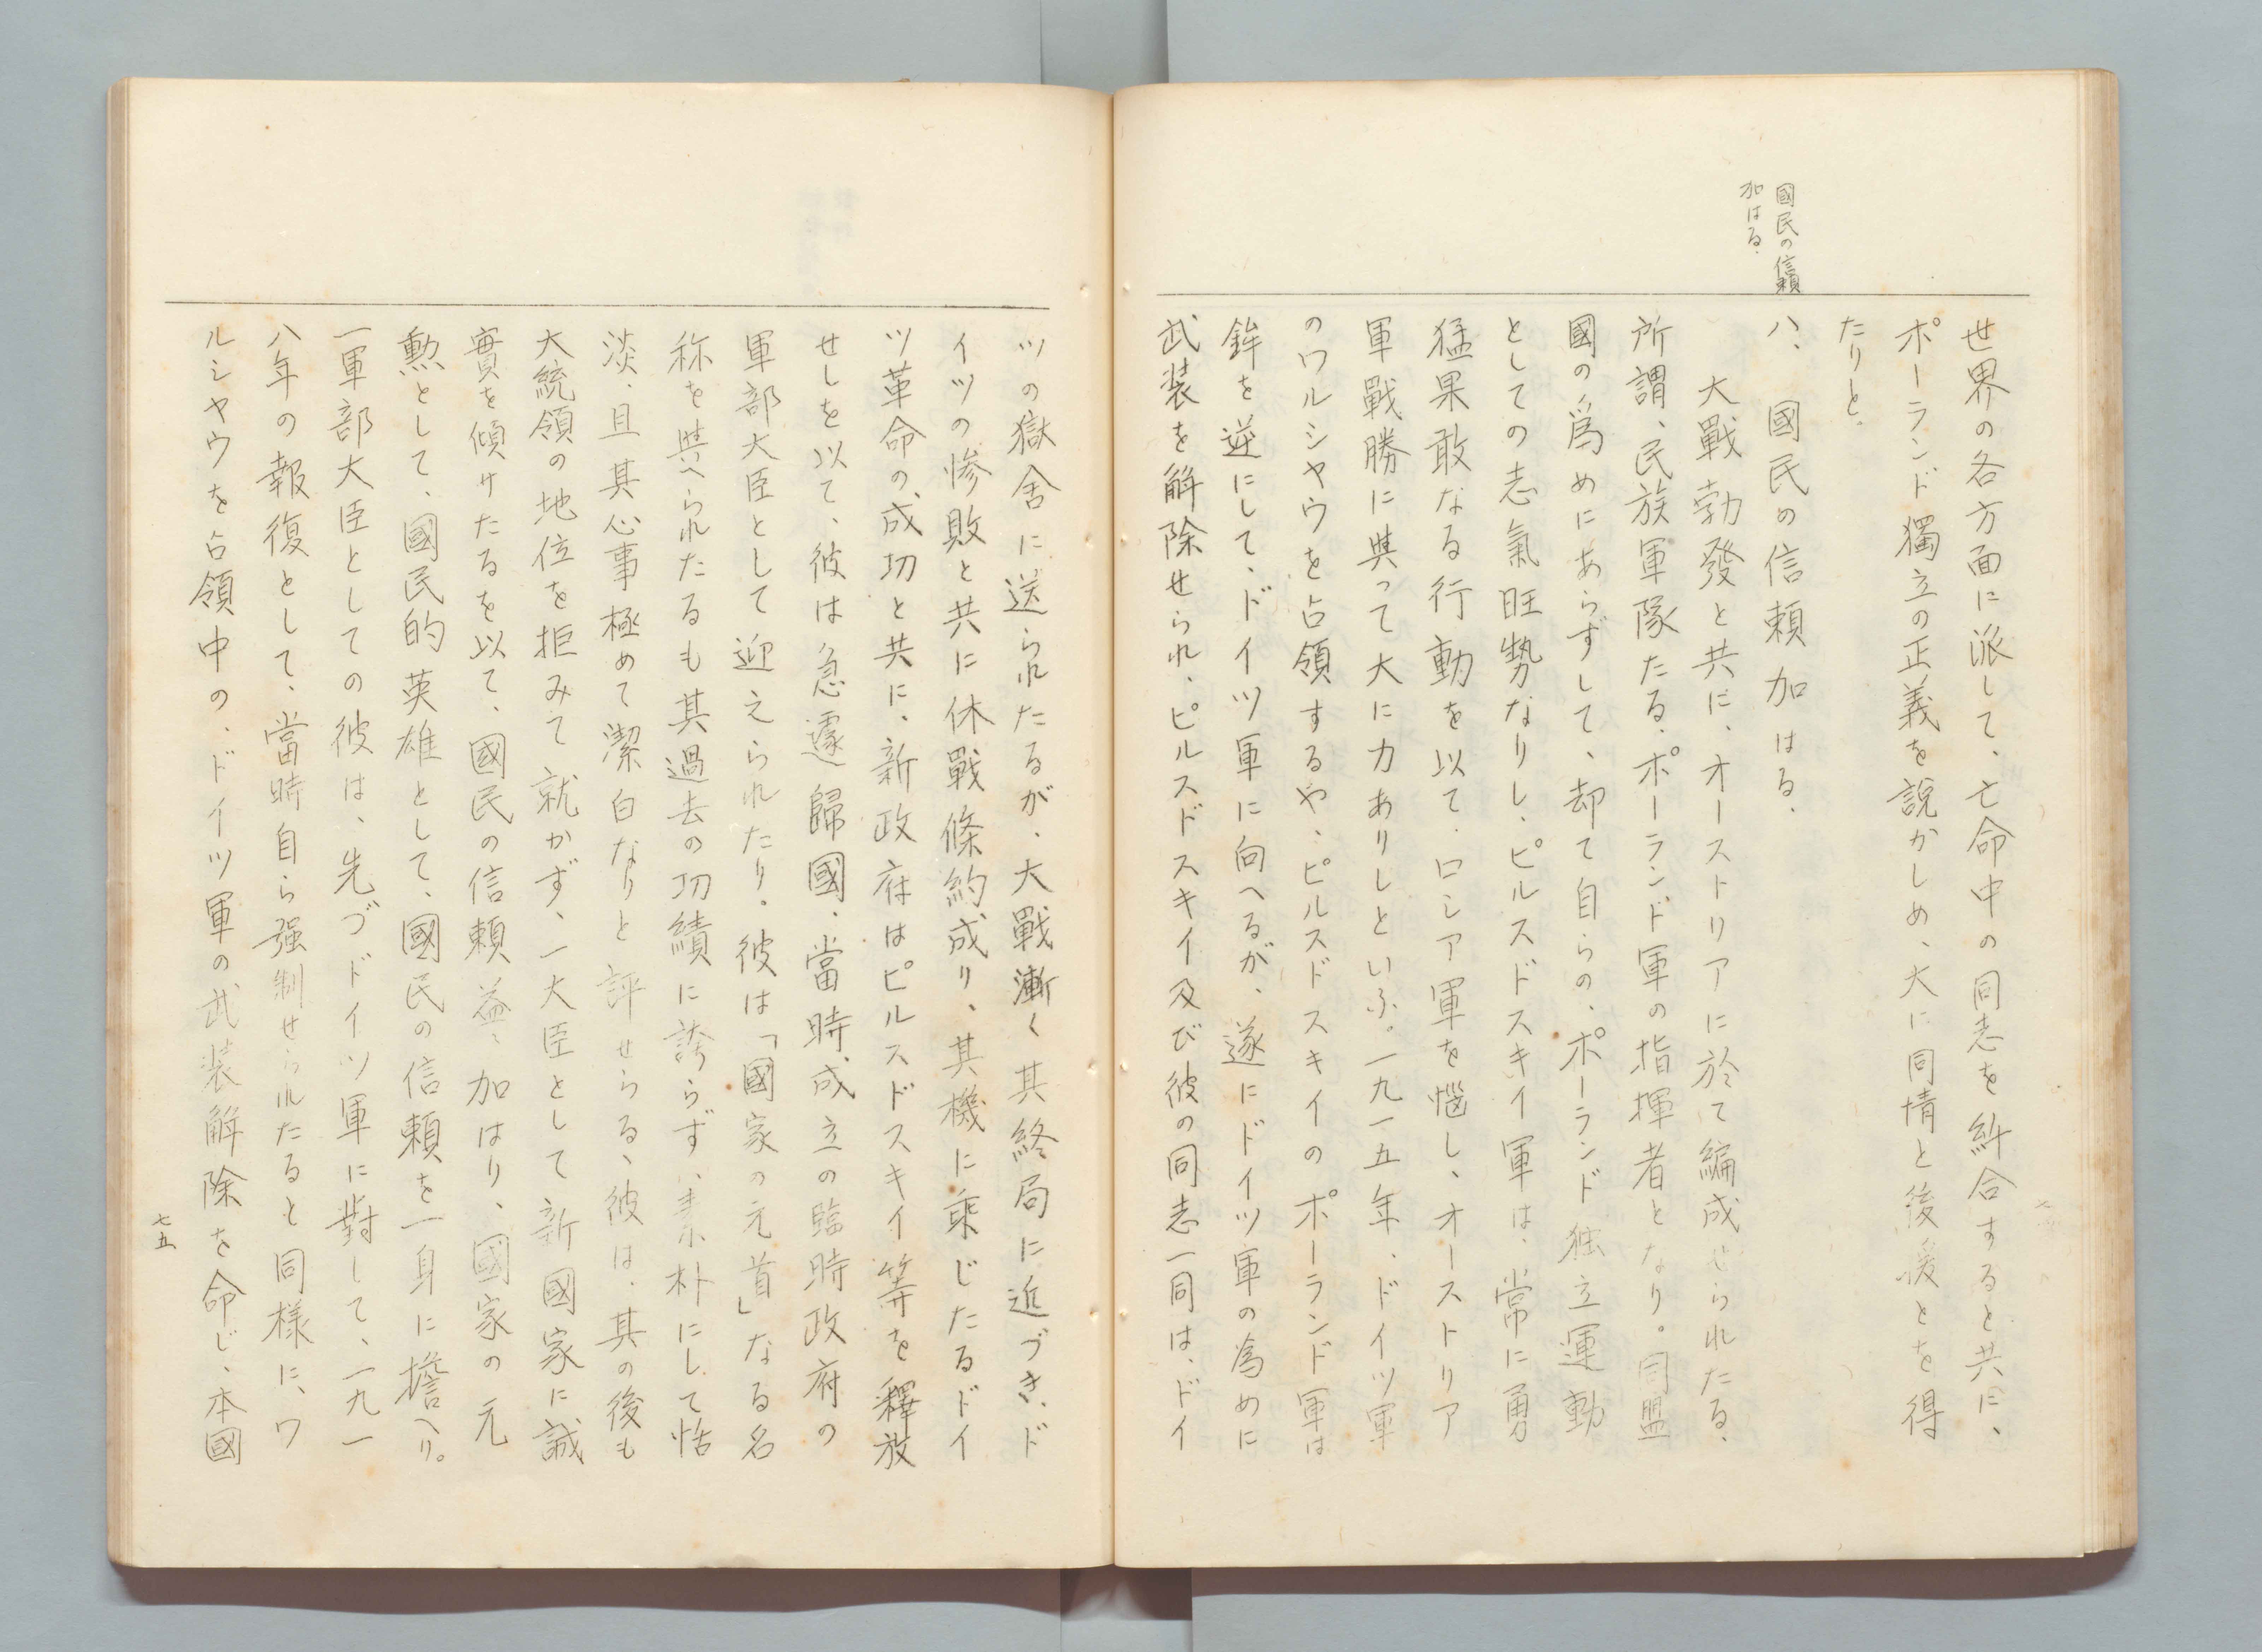 國民の信賴
加はる.
世界の各方面に派して、亡命中の同志を糾合すると共に、
ポーランド獨立の正義を說かしめ、大に同情と後援とを得
たりと.
八、國民の信賴加はる.
大戰勃發と共に、オーストリアに於て編成せられたる、
所謂、民族軍隊たる、ポーランド軍の指揮者となり。同盟
國の爲めにあらずして、却て自らの、ポーランド独立運動
としての志氣旺勢なりし、ピルスドスキイ軍は、常に勇
猛果敢なる行動を以て、ロシア軍を惱し、オーストリア
軍戰勝に與って大に力ありしといふ。一九一五年、ドイツ軍
のワルシヤウを占領するや、ピルスドスキイのポーランド軍は
鉾を逆にして、ドイツ軍に向へるが、遂にドイツ軍の爲めに
武装を解除せられ、ピルスドスキイ及び彼の同志一同は、ドイ
ツの獄舍に送られたるが、大戰漸く其終局に近づき、ド
イツの慘敗と共に休戰條約成り、其機に乘じたるドイ
ツ革命の成功と共に、新政府はピルスドスキイ等を釋放
せしを以て、彼は急遽歸國、當時成立の臨時政府の
軍部大臣として迎えられたり。彼は「國家の元首」なる名
称を與へられたるも其過去の功績に誇らず、素朴にして恬
淡、且其心事極めて潔白なりと評せらる、彼は、其の後も
大統領の地位を拒みて就かず、一大臣として新國家に誠
實を傾けたるを以て、國民の信賴益々加はり、國家の元
勲として、國民的英雄として、國民の信賴を一身に擔へり。
一軍部大臣としての彼は、先づドイツ軍に對して、一九一
八年の報復として、當時自ら强制せられたると同様に、ワ
ルシヤウを占領中の、ドイツ軍の武装解除を命じ、本國
七五